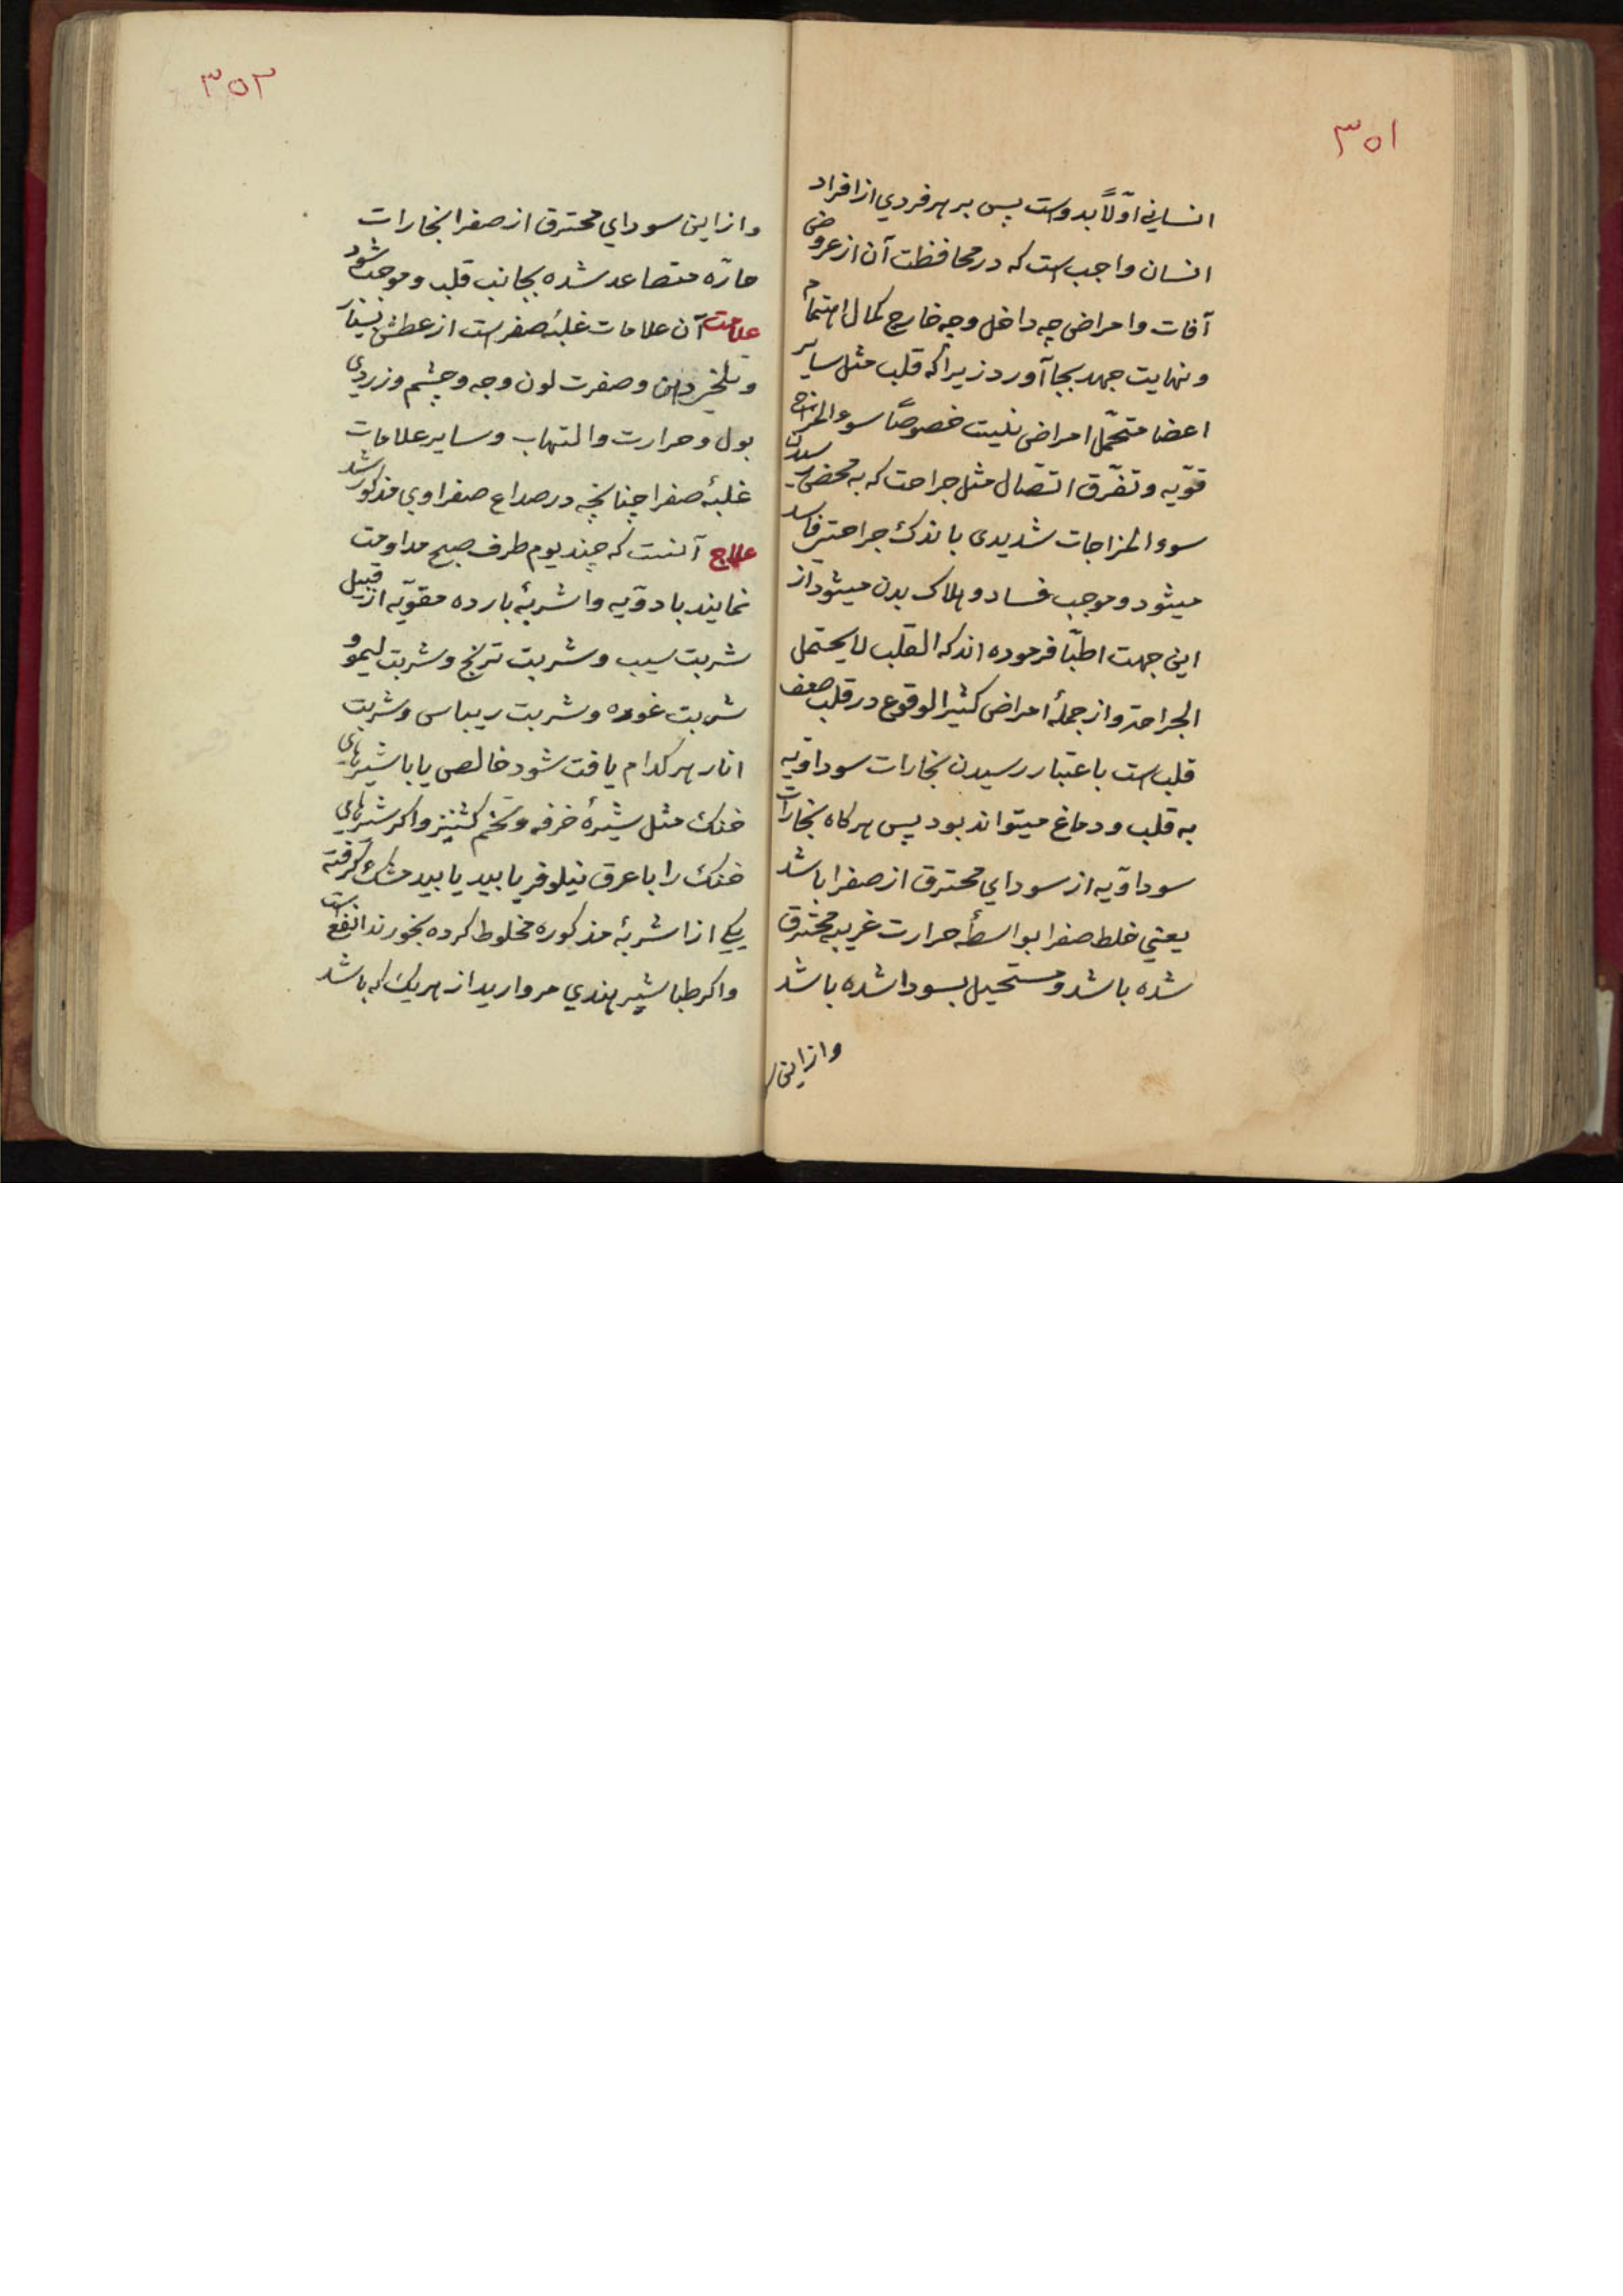 ۳۵۱
انسانی اوّلاً بدوست پس بر هر فردی از افراد
انسان واجب است که در محافظت آن از عروض
آفات و امراض چه داخل و چه خارج کمال اهتمام
و نهایت جهد بجا آورد زیرا که قلب مثل سایر
اعضا متحمّل امراض نیست خصوصاً سوء المزاج
قوّیه و تفرّق اتّصال مثل جراحت که به محض رسیدن
سوء المزاجات شدیدی با ندک جراحتی فاسد
میشود و موجب فساد و هلاک بدن میشود از
این جهت اطبّا فرموده اند که القلب لا یحتمل
الجراحة و از جملهٔ امراض کثیر الوقوع در قلب ضعف
قلب است باعتبار رسیدن بخارات سوداوّیه
به قلب و دماغ میتواند بود پس هرکاه بخارات
سوداوّیه از سودای محترق از صفرا باشد
یعنی خلط صفرا بواسطهٔ حرارت غریبه محترق
شده باشد و مستحیل بسودا شده باشد
و از این
۳۵۲
و از این سودای محترق از صفرا بخارات
حارّه متصاعد شده بجانب قلب و موجب شود
علامت آن علامات غلبهٔ صفرا ست از عطش بسیار
و تلخی دهن و صفرت لون وجه و چشم و زردی
بول و حرارت و التهاب و سایر علامات
غلبهٔ صفرا چنانچه در صداع صفراوی مذکور شد
علاج آنست که چند یوم طرف صبح مداومت
نمایند بادوّیه و اشربهٔ بارده مقوّیه از قبیل
شربت سیب و شربت ترنج و شربت لیمو و
شربت غوره و شربت ریباس و شربت
انار هر کدام یافت شود خالص یا با شیرهای
خنک مثل شیرهٔ خرفه و تخم کشنیز و اکر شیرهای
خنک را با عرق نیلوفر یا بید یا بید مشک کرفته
یکی از اشربهٔ مذکوره مخلوط کرده بخورند انفع است
و اکر طباشیر هندی مروارید از هریک که باشد